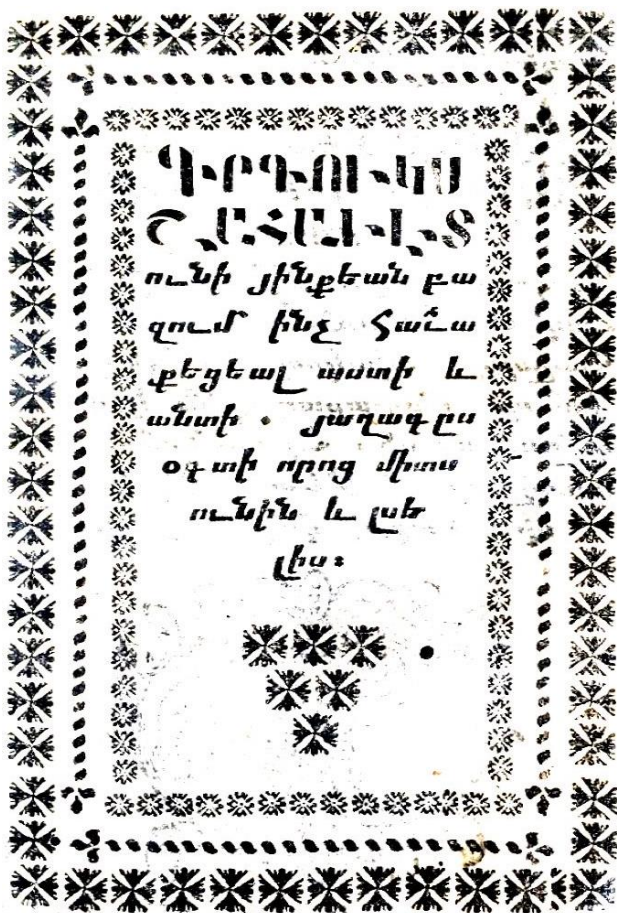 ԳԻՐԳՈՒԿՍ
ՇԱՀԱՒԷՏ
ունի յինքեան բա
զում ինչ հաւա
քեցեալ աստի և
անտի . յաղագըս
օգտի որոց միտս
ունին և լսե
լիս։